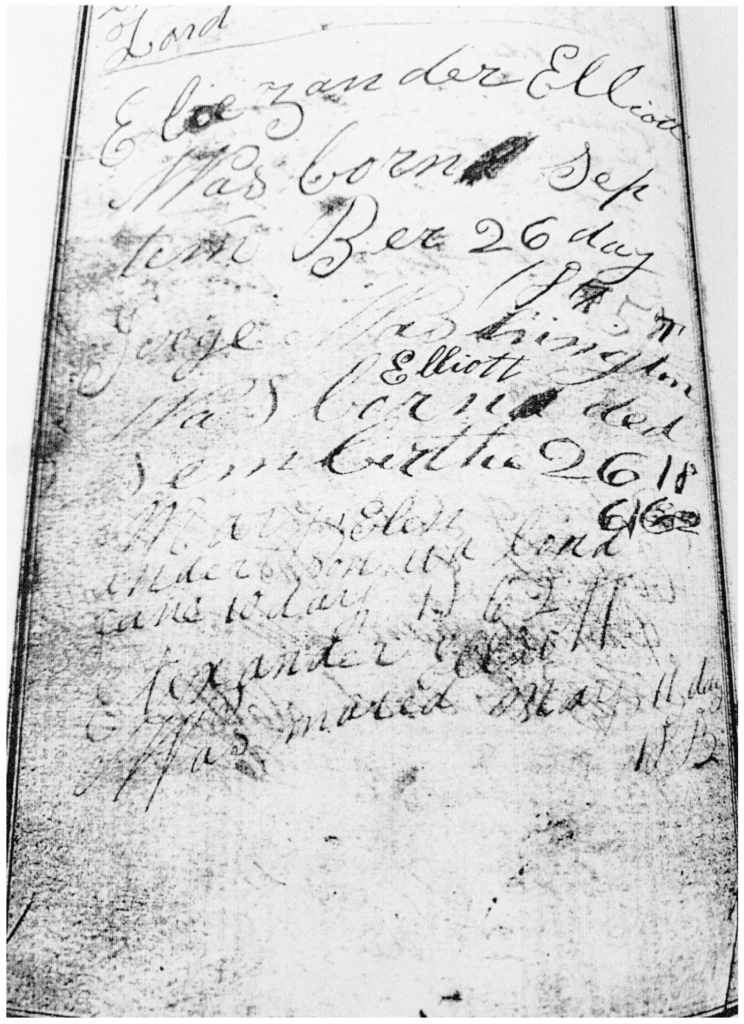 Lord
Elexzander Elliott
Was born Sep
tem Ber 26 day
185
Jorge Washington
Elliott
Was born ded
sem birthe 26 18
6
Mary Elen
anderson
10 day 1862
Elexander
Was mared May 11 day
18